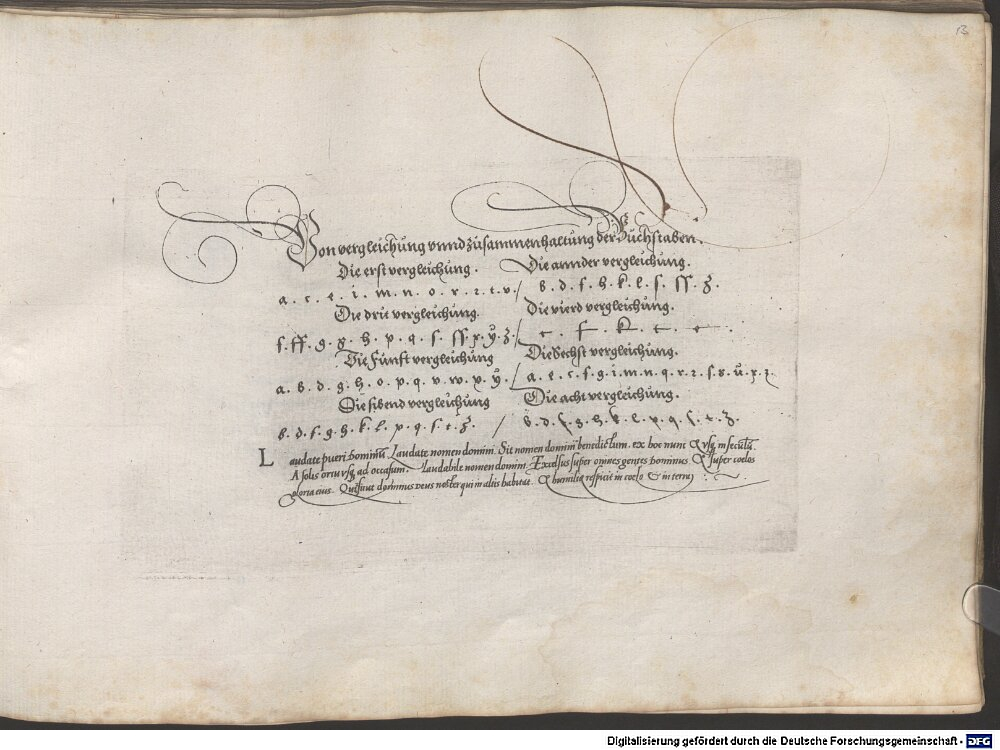 13
Von vergleichung vnnd zusammenhaltung der Buchstaben.
Die erst vergleichung. Die annder vergleichung.
a . c . e . i . m . n . o . r . z . t . v . / b . d . f . h . k . l . s . ſſ . z .
Die drit vergleichung. Die vierd vergleichung.
ſ . ff . g . g . h . p . q . s . ſſ . x . ÿ . z . / c . f . k . t . e .
Die Funfft vergleichung Die Sechst vergleichung.
a . b . d . g . h . o . p . q . v . w . x . ÿ . / a . e . c . f . g . i . m . n . q . r . z . s . ů . x . z
Die sibend vergleichung Die acht vergleichung.
b . d . f . g . h . k . l . p . q . s . t . z . / b . d . f . g . h . k . l . p . q . s . t . z .
Laudate pueri Dominũ, Laudate nomen domini. Sit nomen domini benedictum. ex hoc nunc & vsq, in seculũ.
A solis ortu vsq, ad occasum. laudabile nomen domini. Excelsus super omnes gentes Dominus & super coelos
gloria eius. Quis sicut dominus Deus noster qui in altis habitat. & humilia respicit in coelo & in terra
Digitalisierung gefördert durch die Deutsche Forschungsgemeinschaft - DFG